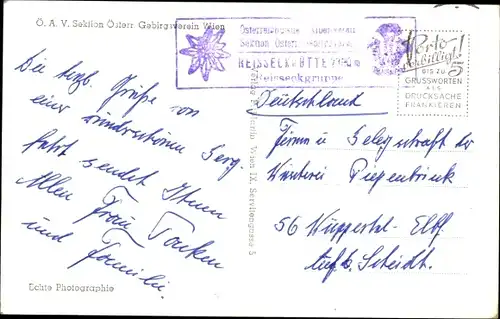 Ö. A. V. Sektion Österr. Gebirgsverein Wien
Österreichischer Alpenverein
Sektion Österr. Gebirgsverein
REISSECKHÜTTE
Reisseckgruppe
Porto
billigt!
BIS ZU 5
GRUSSWORTEN
ALS
DRUCKSACHE
FRANKIEREN
Die herzl. Grüße von
einer wunderschönen Berg-
fahrt sendet Ihnen
Allen Frau
und Familie.
Deutschland
Firma u Belegschaft der
Piepenbrink
56 Wuppertal-Elbf.
Auf d. Scheidt.
Wien IX. Servitengasse 5
Echte Photographie